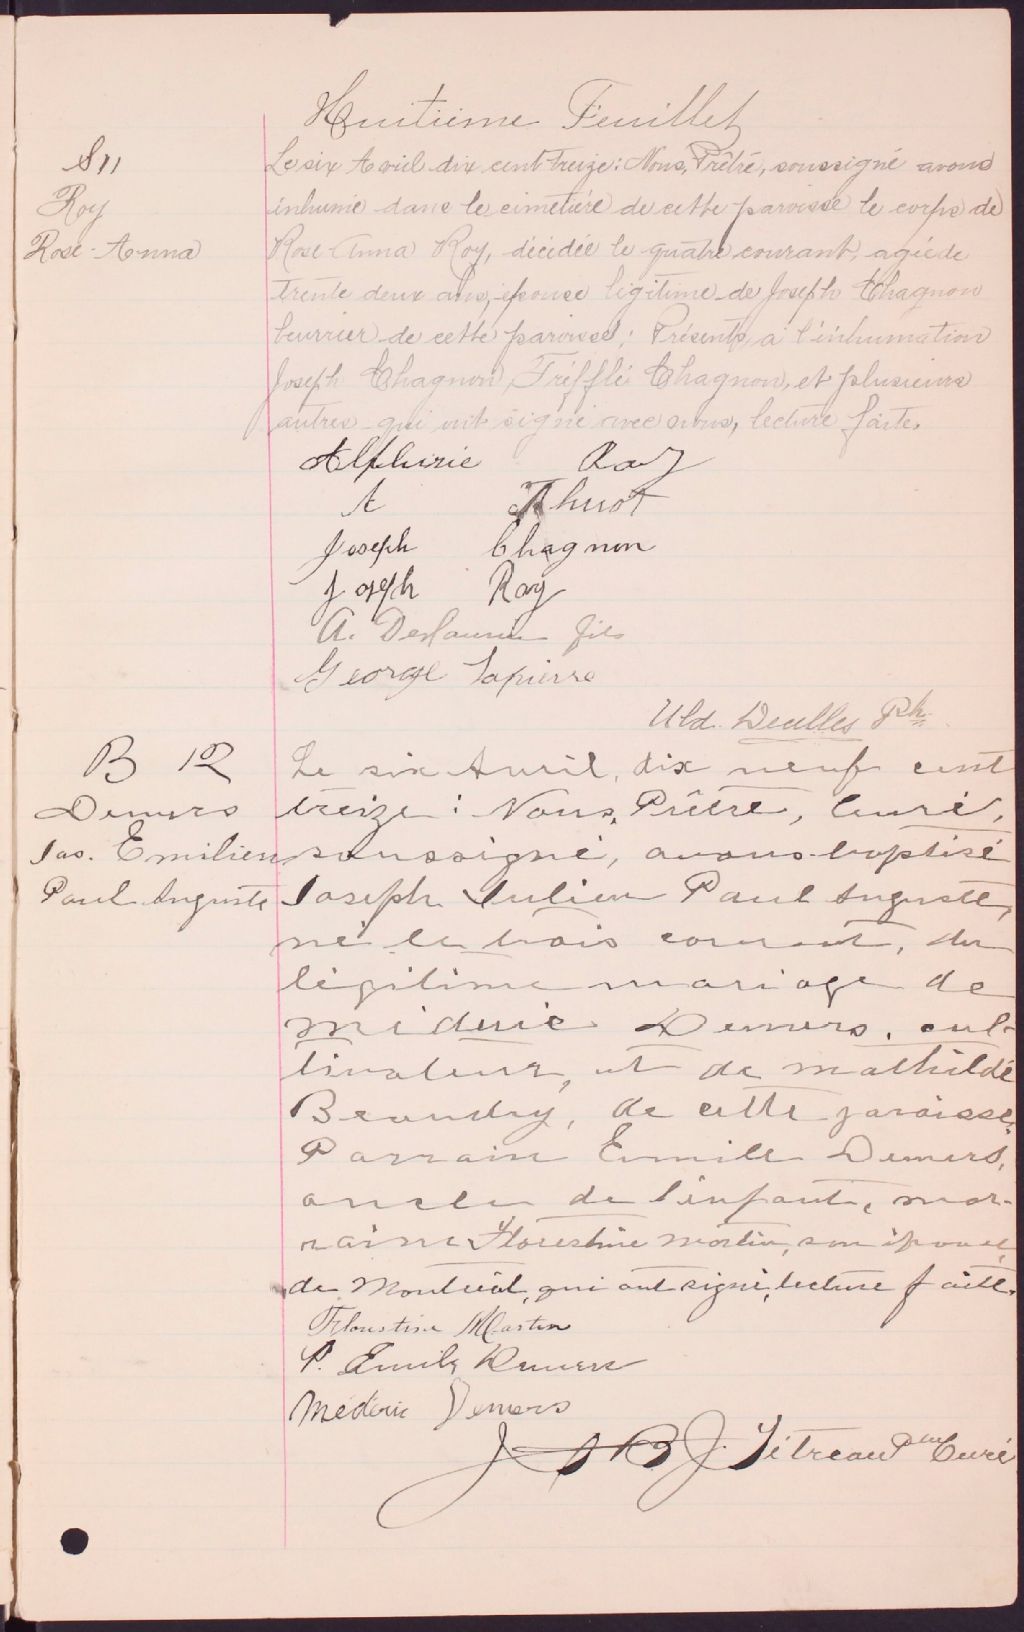 Huitième Feuillet
S 11
Roy
Rose-Anna
Le six Avril dix cent treize: Nous, Prêtré, soussigné avons
inhumé dans le cimetière de cette paroisse le corps de
Rose Anna Roy, décédée le quatre courant, agée de
trente deux ans, épouse légitime de Joseph Chagnon
beurrier de cette paroisse; Présents à l'inhumation
Joseph Chagnon, Trefflé Chagnon, et plusieurs
autres qui ont signé avec nous, lecture faite.
Alphérie Roy
A Thuot
Joseph Chagnon
Joseph Roy
A. Deslauriers fils
George Lapierre
Uld. Deulles Ptr
B 12
Demers
Jos. Emilien
Paul Auguste
Le six Avril, dix neuf cent
treize: Nous, Prêtre, Curé,
soussigné, avons baptisé
Joseph Julien Paul Auguste,
né le trois courant, du
légitime mariage de
Médéric Demers, cul-
tivateur, et de Mathilde
Beaudry, de cette paroisse.
Parrain Emile Demers,
oncle de l'enfant, mar-
raine Florestine Martin, son épouse,
de Montréal, qui ont signé, lecture faite.
Florestine Martin
P. Emile Demers
Médéric Demers
J. A B J. Titreau Ptre Curé